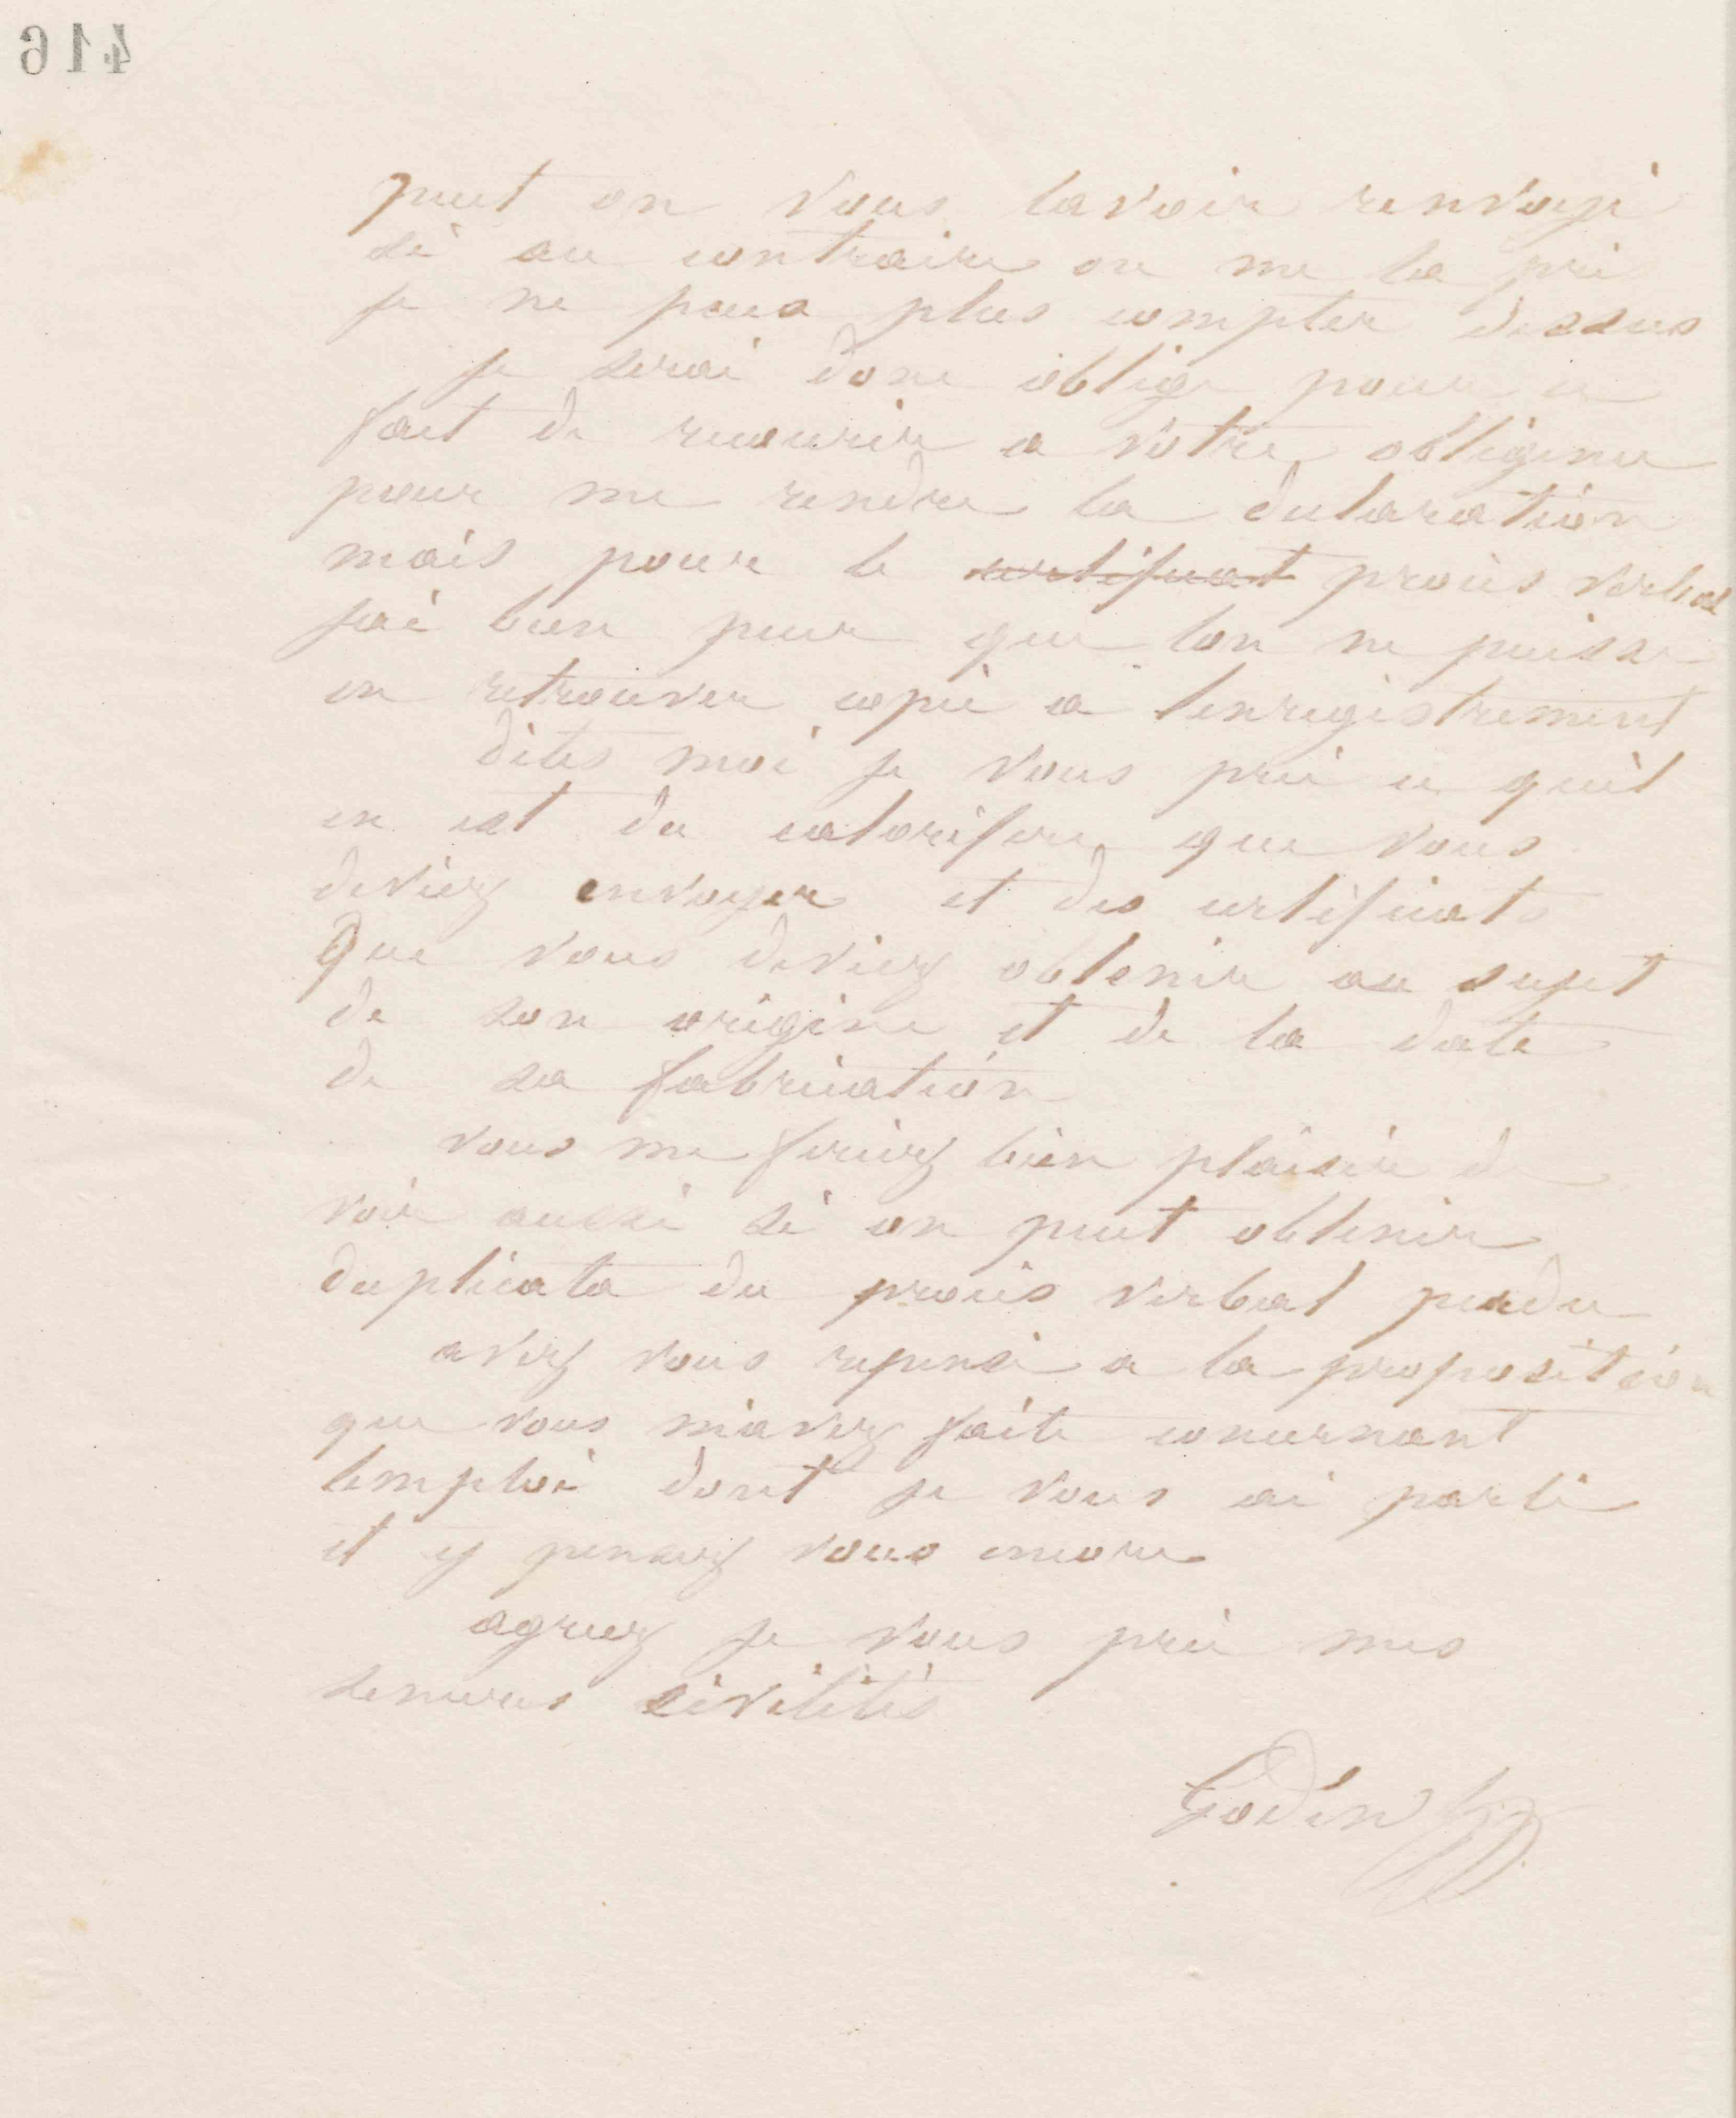 416
peut on vous lavoir renvoyé
si au contraire on me la pris
je ne peux plus compter dessus
je serai donc oblige pour ce
fait de recourir a votre obligence
pour me rendre la declaration
mais pour le certificat procès verbal
jai bien peur que lon ne puisse
en retrouver copie a lenregistrement
dites moi je vous prie ce quil
en est du calorifere que vous
deviez envoyer et des certificats
Que vous deviez obtenir au sujet
de son origine et de la date
de sa fabrication
vous me feriez bien plaisir de
voir aussi si on peut obtenir
duplicata du procès verbal perdu
avez vous repensé a la proposition
que vous m'avez faite concernant
lemploi dont je vous ai parlé
et y pensez vous encore
agreez je vous prie mes
sinceres civilités
Godin